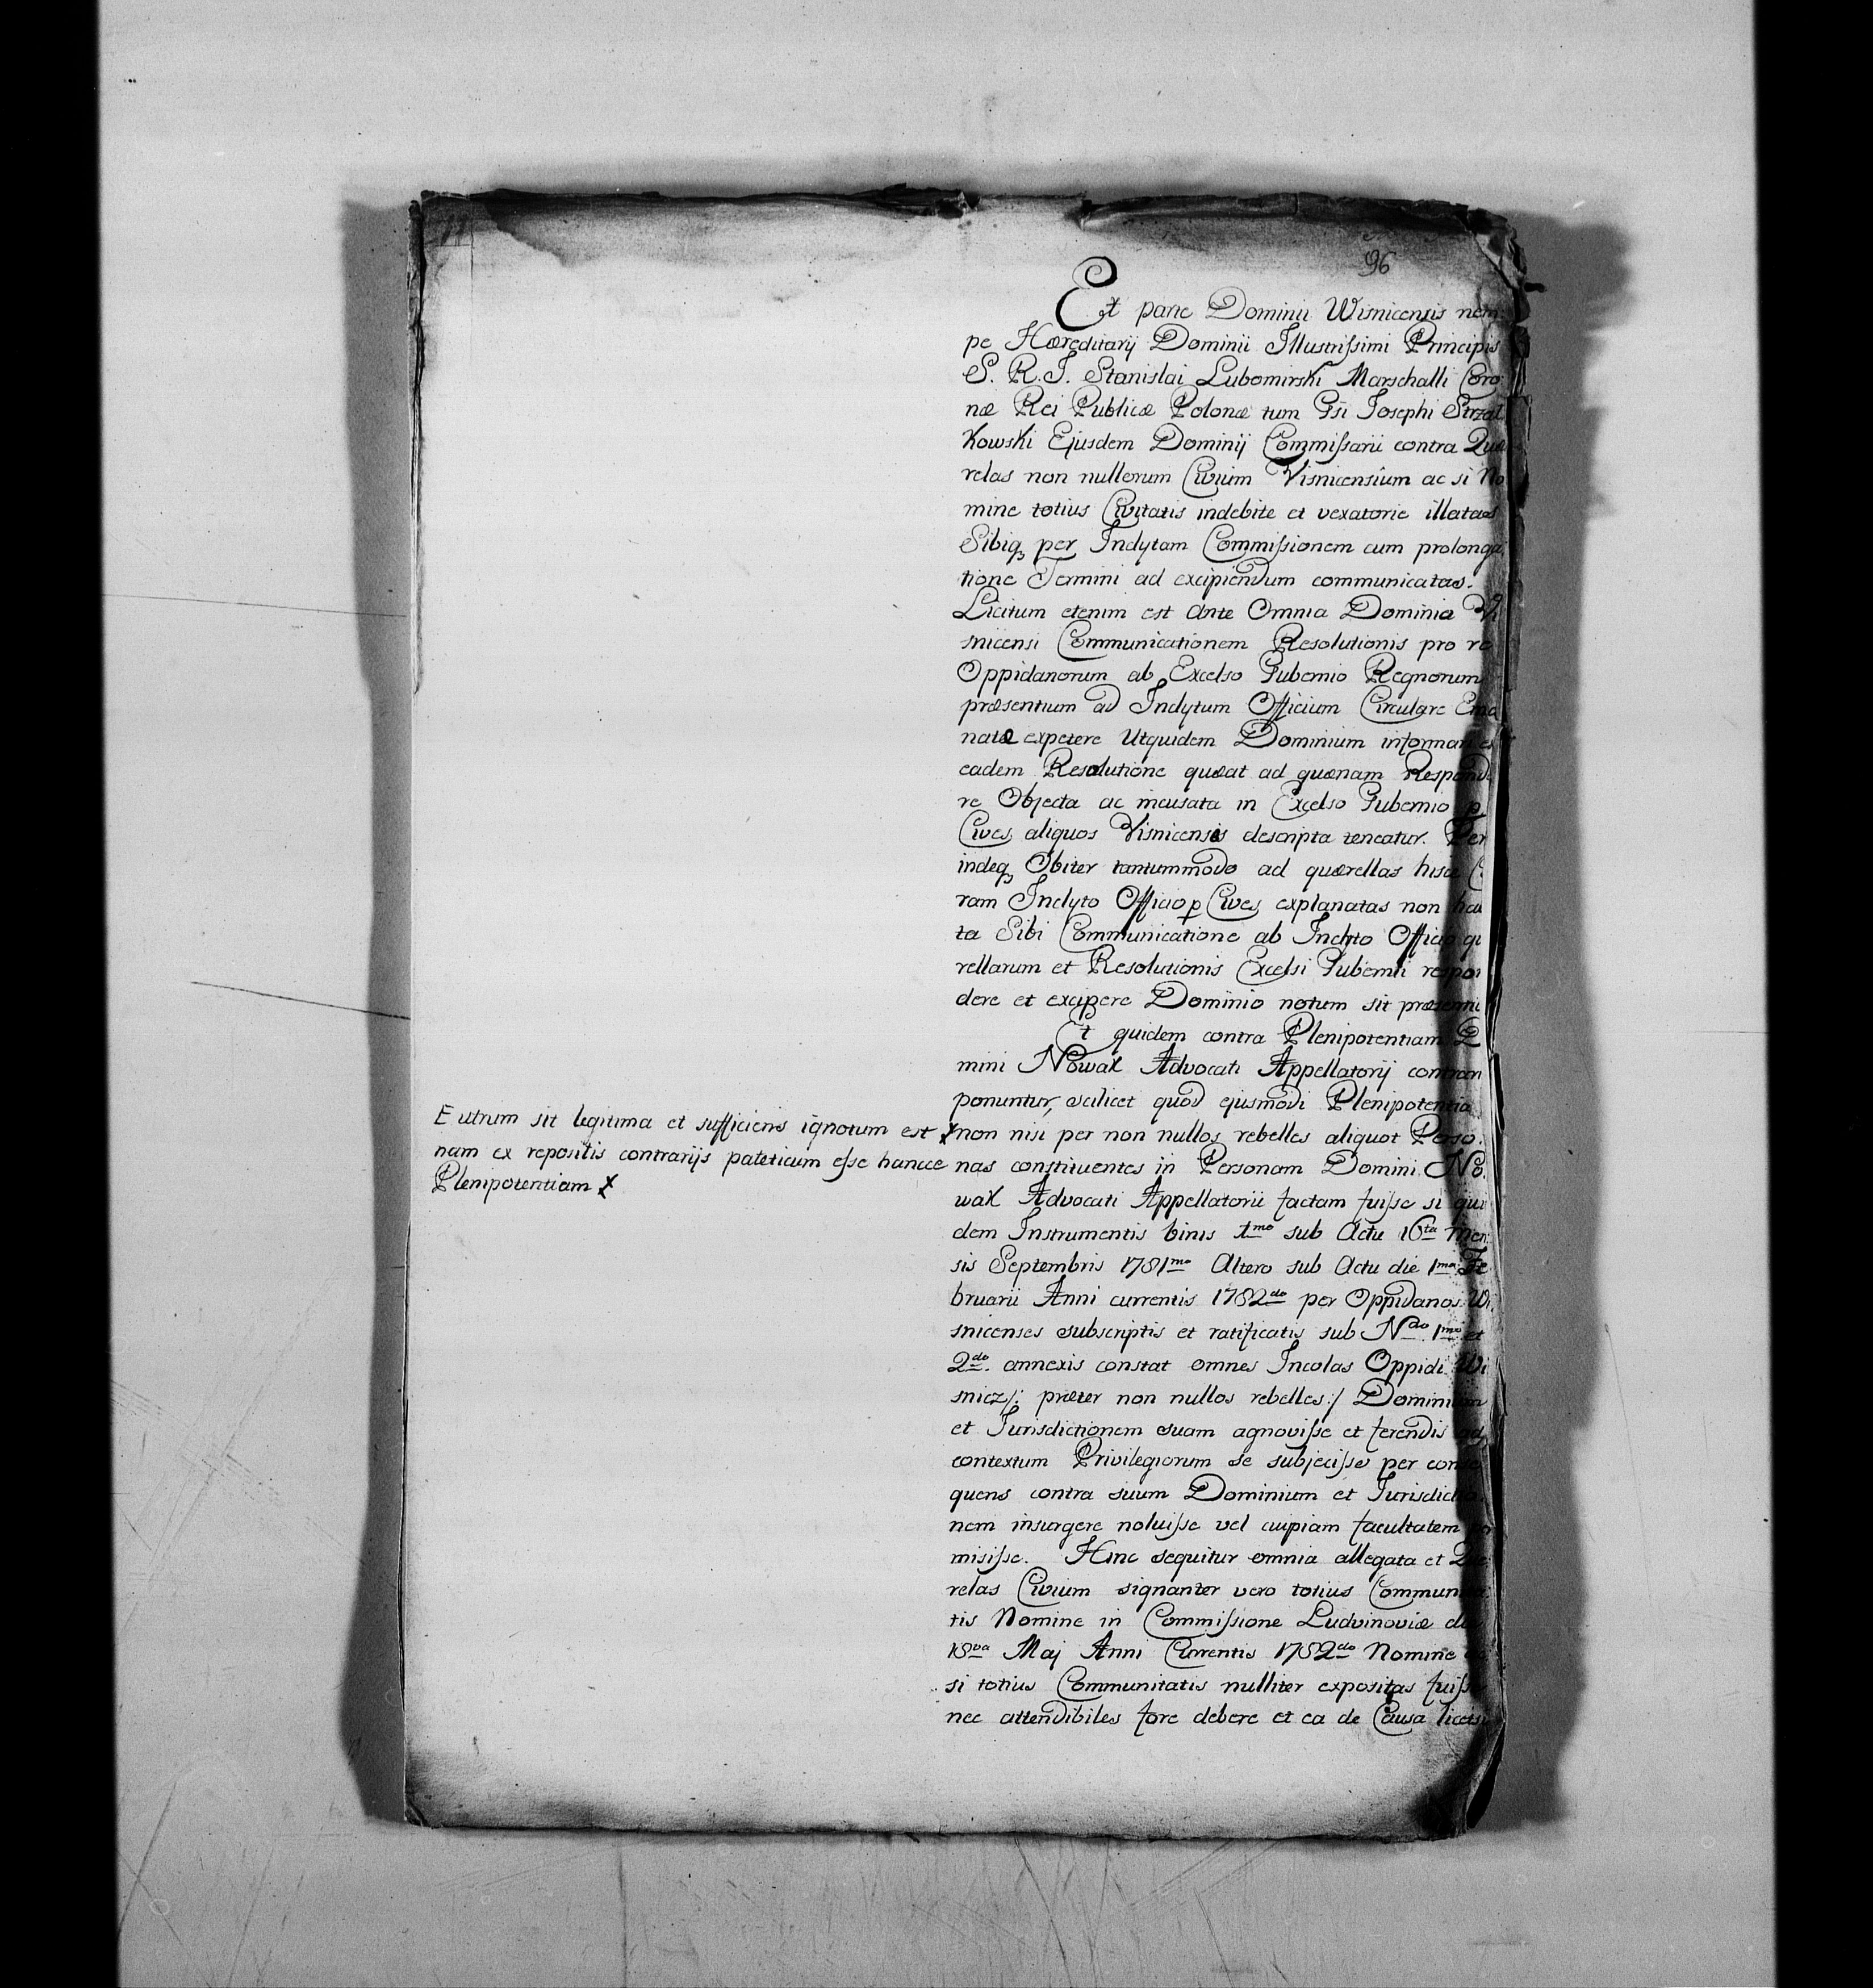 96
Ex parte Dominii Wisnicensis nem:
pe Hæreditarij Dominii Illustrissimi Principis
S. R. I. Stanislai Lubomirski Marschalli Coro:
næ Rei Publicæ Polonæ tum Gsi Josephi Strzał
kowski Ejusdem Dominij Commissarii contra Quæ
relas non nullorum Civium Visnicensium ac si No
mine totius Civitatis indebite et vexatorie illatas
Sibiq per Inclytam Commissionem cum prolonga
tione Termini ad excipiendum communicatas.
Licitum etenim est Ante Omnia Dominio Vi
snicensi Communicationem Resolutionis pro re
Oppidanorum ab Excelso Gubernio Regnorum
præsentium ad Inclytum Officium Circulare Ema
natæ expetere Utquidem Dominium informari ex
eadem Resolutione quæat ad quænam Responde
re Objecta ac incusata in Excelso Gubernio p
Cives aliquos Visnicensis descripta teneatur. Per
indeq Obiter tantummodo ad quærellas hisce
ram Inclyto Officio p Cives explanatas non ha
ta Sibi Communicatione ab Inclyto Officio qu
rellarum et Resolutionis Excelsi Gubernii respon
dere et excipere Dominio notum sit
Et quidem contra Plenipotentiam
mini Nowak Advocati Appellatorij
ponuntur, scilicet quod ejusmodi Plenipotentia
E utrum sit legitima et sufficiens ignotum est
nam ex repositis contrarijs pateticum esse hancce
Plenipotentiam
non nisi per non nullos rebelles aliquot Perso.
nas constituentes in Personam Domini No.
wak Advocati Appellatorii factam fuisse si qui
dem Instrumentis binis 1mo sub Actu 16ta Men:
sis Septembris 1781mo Altero sub Actu die 1ma Fe
bruarii Anni currentis 1782do per Oppidanos Wi
snicenses subscriptis et ratificatis sub Ndo 1mo et
2do. annexis constat omnes Incolas Oppidi Wi
snicz/: præter non nullos rebelles:/ Dominium
et Jurisdictionem suam agnovisse et ferendis ad
contextum Privilegiorum se subjecisse per conse
quens contra suum Dominium et Jurisdictio
nem insurgere noluisse vel cuipiam facultatem
misisse. Hinc sequitur omnia allegata et Que
relas Civium signanter vero totius Communita
tis Nomine in Commissione Ludvinoviæ die
18va Maj Anni Currentis 1782do Nomine
si totius Communitatis nulliter expositas fuisse
nec attendibiles fore debere et ea de Causa licetsi